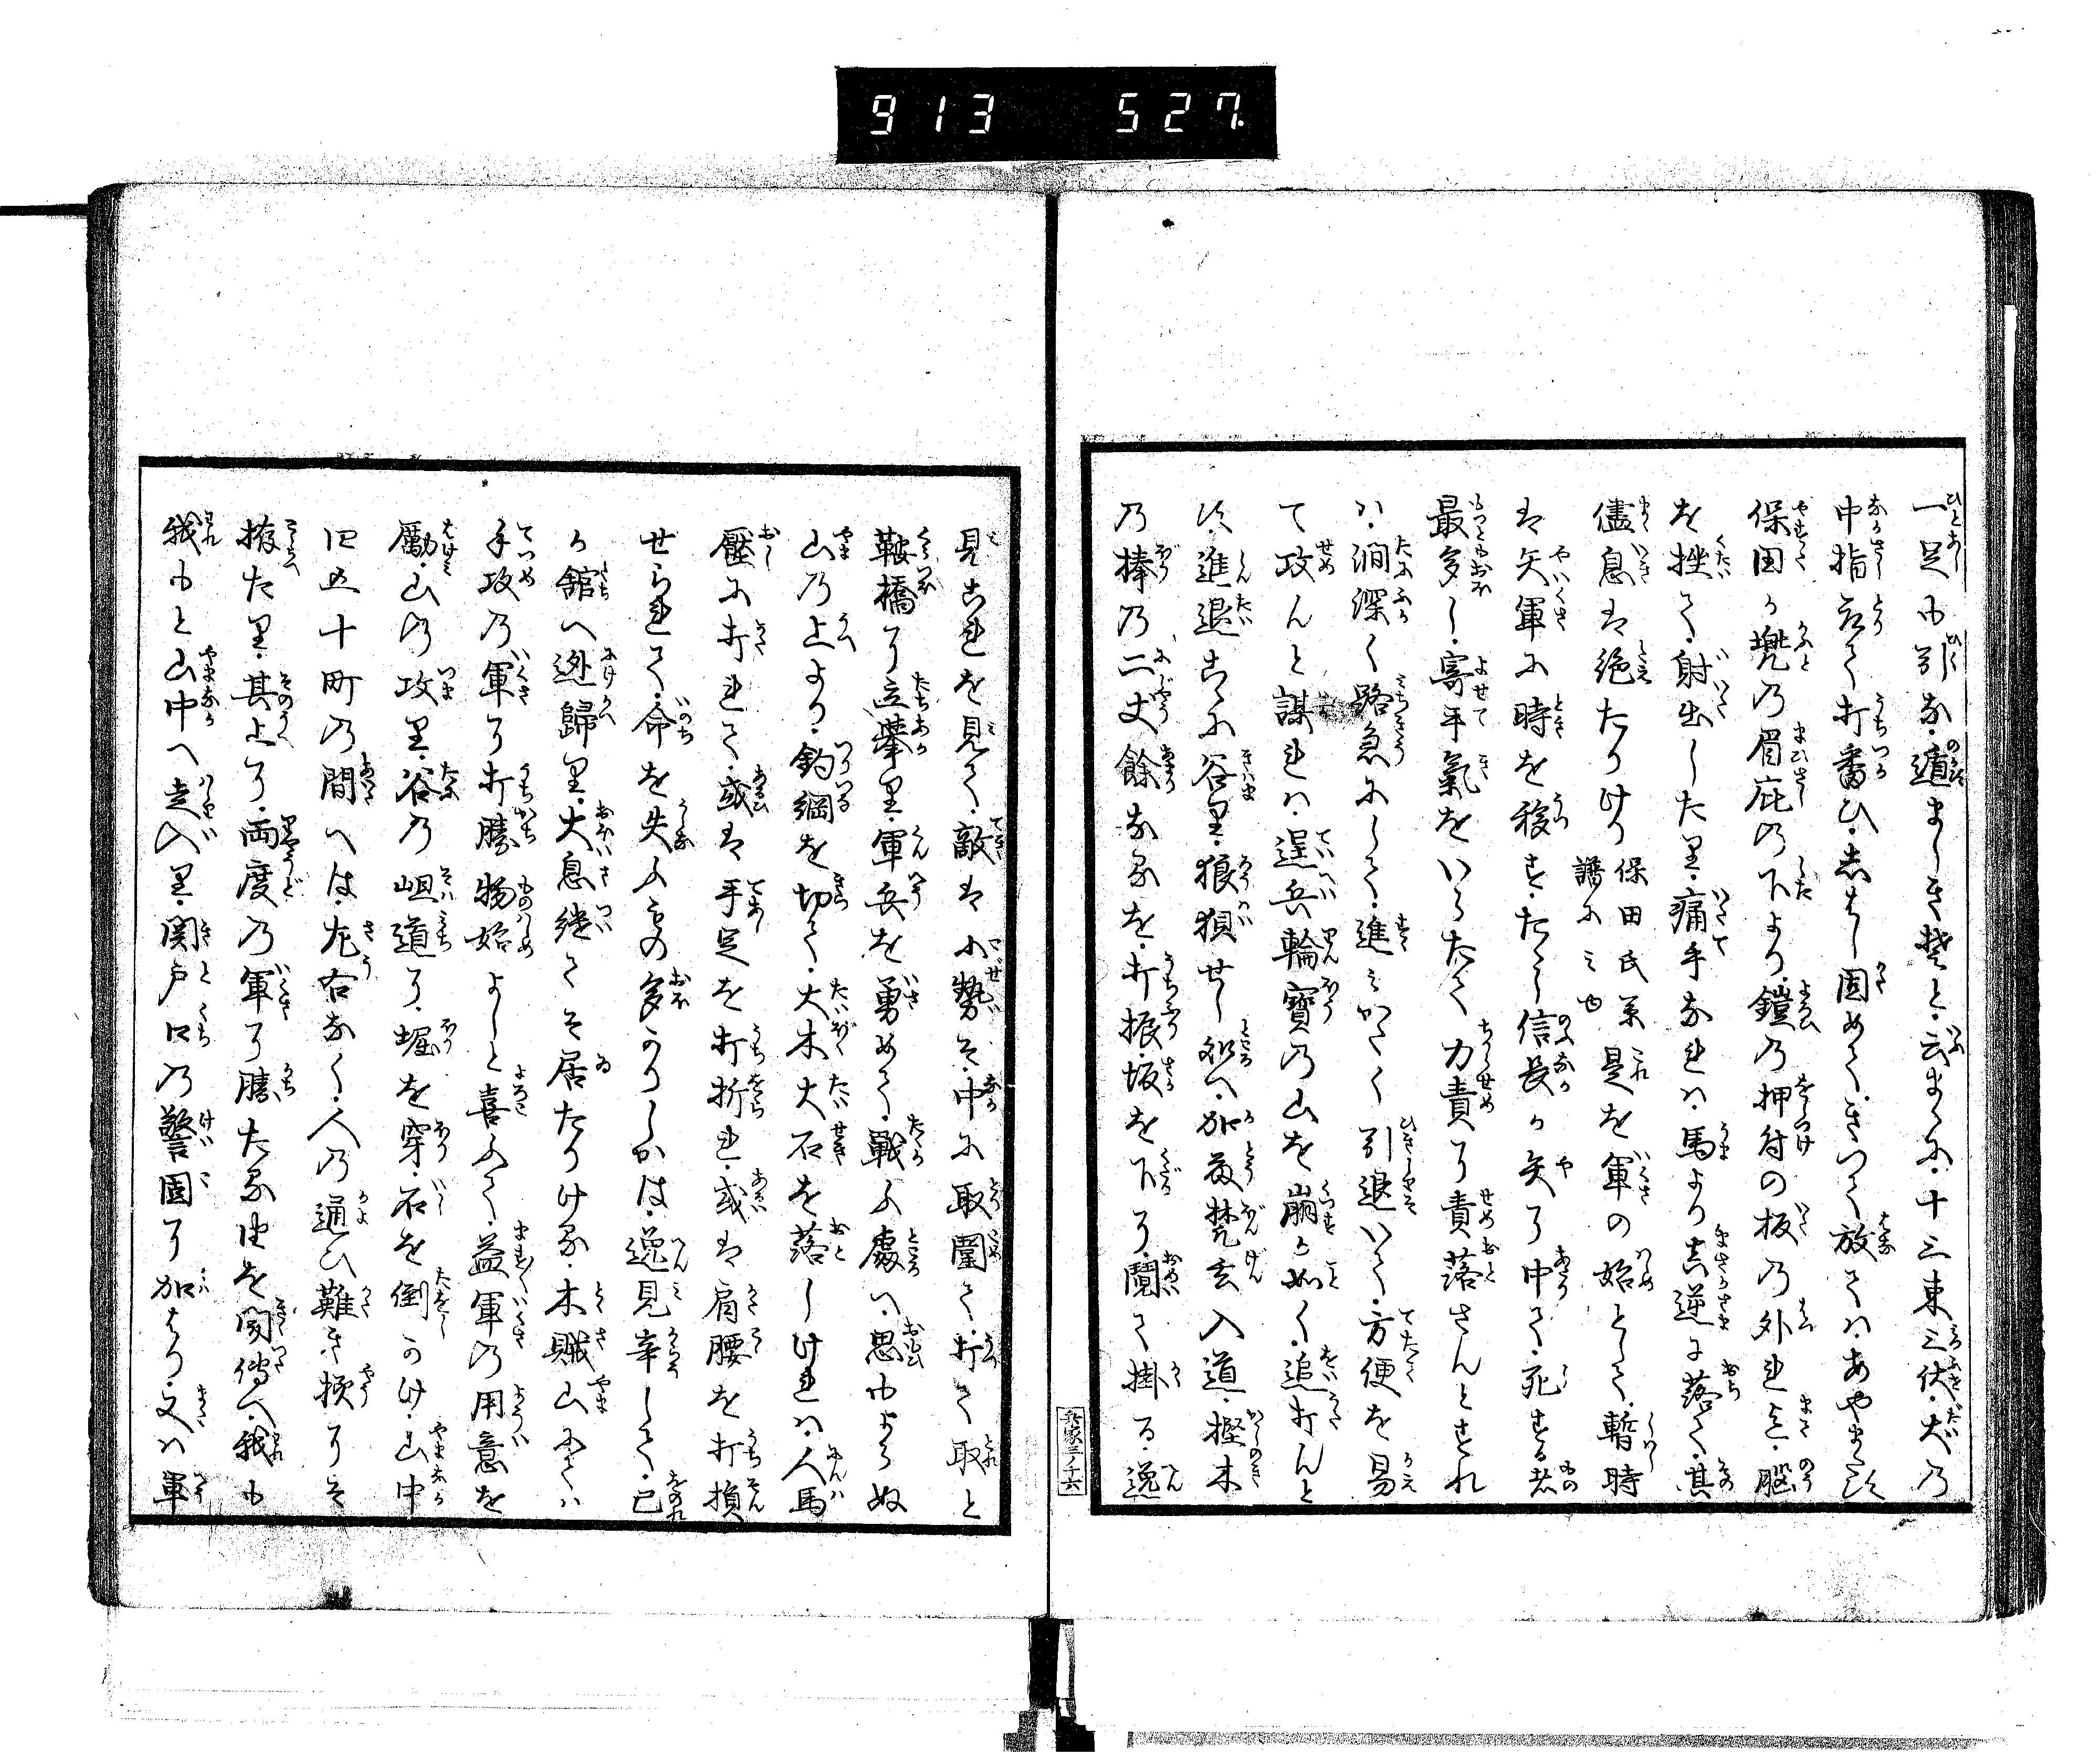 913 527.
一足も引な遁ましき埜と云まゝに十三束三伏大の
中指取て打番ひ志はし固めてきつて放てはあやまたす
保田か兜の眉庇の下より鎧の押付の板の外れ迄脳
を挫て射出したり痛手なれは馬より真逆に落て其
儘息は絶たりけり
保田氏系
譜にみゆ
是を軍の始として暫時
は矢軍に時を移すたゝし信長か矢に中て死する者
最多し寄手気をいらたて力責に責落さんとすれ
は澗深く路急にして進みかたく引退いて方便を易
て攻んと謀れは逞兵輪宝の山を崩か如く追打んと
す進退こゝに谷り狼狽せし処へ加藤梵玄入道樫木
の棒の二丈餘なるを打振坂を下り鬩て掛る逸
兵家三ノ十六
見これを見て敵は小勢そ中に取圍て打て取と
鞍橋に立挙り軍兵を勇めて戦ふ處へ思ひもよらぬ
山の上より釣綱を切て大木大石を落しけれは人馬
壓に打れて或は手足を打折れ或は肩腰を打損
せられて命を失ふもの多かりしかは逸見辛して己
か舘へ迯歸り大息継てそ居たりける木賊山にては
手攻の軍に打勝物始よしと喜ふて益軍の用意を
勵山の攻り谷の岨道に堀を穿石を倒かけ山中
四五十町の間へは左右なく人の通ひ難き様にそ
拵たり其上に両度の軍に勝たる由を聞傳へ我も
我もと山中へ走入り関戸口の警固に加はり又は軍